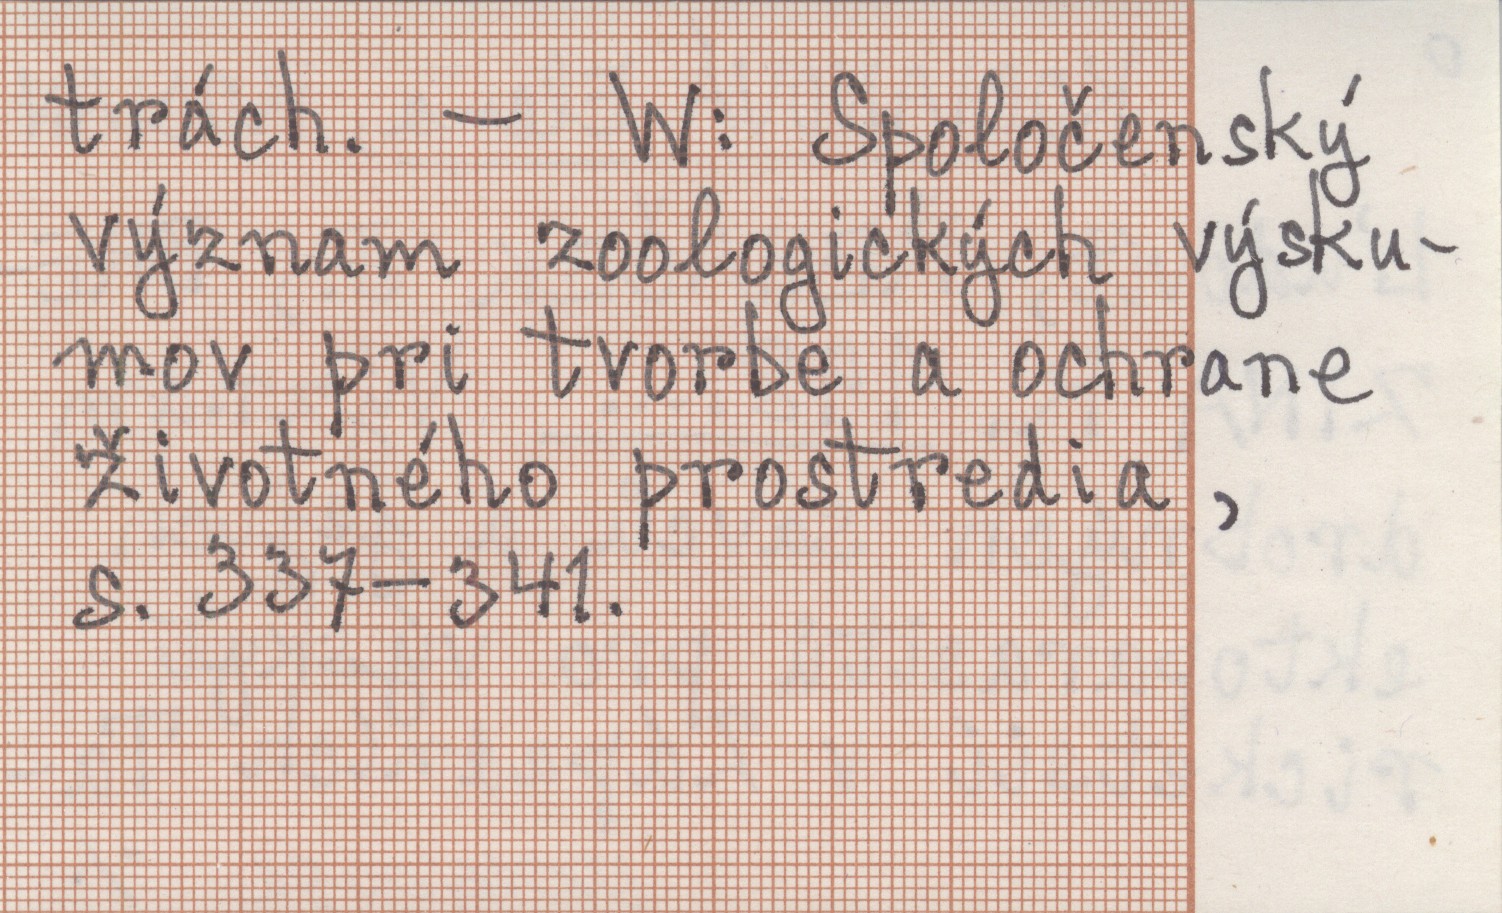 trách. – W: Spoločenský
význam zoologických výsku-
mov pri tvorbe a ochrane
životného prostredia,
s. 337–341.